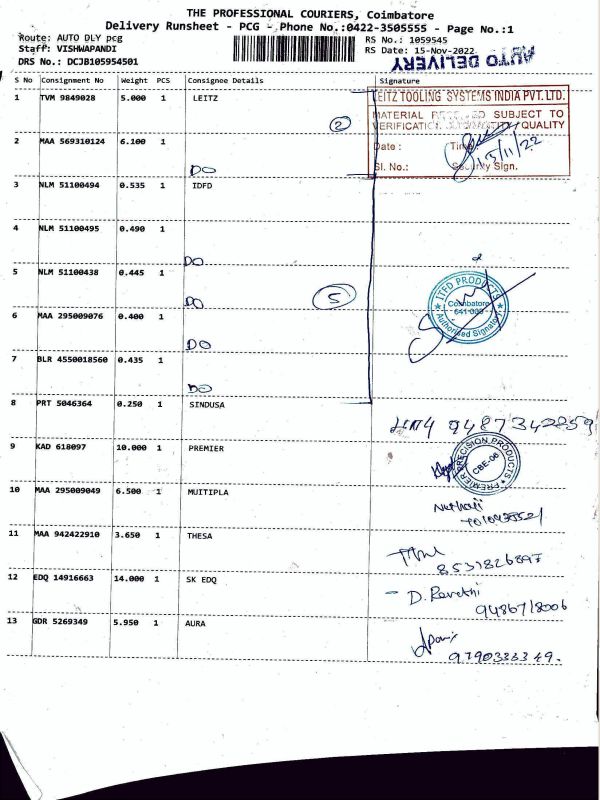 THE PROFESSIONAL COURIERS, Coimbatore
Delivery Runsheet - PCG - Phone No.:0422-3505555 - Page No.:1
Route: AUTO DLY pcg
RS No.: 1059545
Staff: VISHWAPANDI
RS Date: 15-Nov-2022
DRS No.: DCJB105954501
AUTO DELIVERY
S No Consignment No Weight PCS Consignee Details Signature
1 TVM 9849028 5.000 1 LEITZ
LEITZ TOOLING SYSTEMS INDIA PVT. LTD.
MATERIAL SUBJECT TO
VERIFICATION QUALITY
2
2 MAA 569310124 6.100 1
Date : Time
15/11/22
DO
Sl. No.: Security Sign.
3 NLM 51100494 0.535 1 IDFD
4 NLM 51100495 0.490 1
DO
5 NLM 51100438 0.445 1
DO
5
ITFD PRODUCTS
Coimbatore
Authorised Signatory
6 MAA 295009076 0.400 1
DO
7 BLR 4550018560 0.435 1
DO
8 PRT 5046364 0.250 1 SINDUSA
9487342259
9 KAD 618097 10.000 1 PREMIER
PREMIER PRECISION PRODUCTS
CBE-06
10 MAA 295009049 6.500 1 MUITIPLA
11 MAA 942422910 3.650 1 THESA
8531826897
12 EDQ 14916663 14.000 1 SK EDQ
D. Revethi
9486718006
13 GDR 5269349 5.950 1 AURA
9790333349.